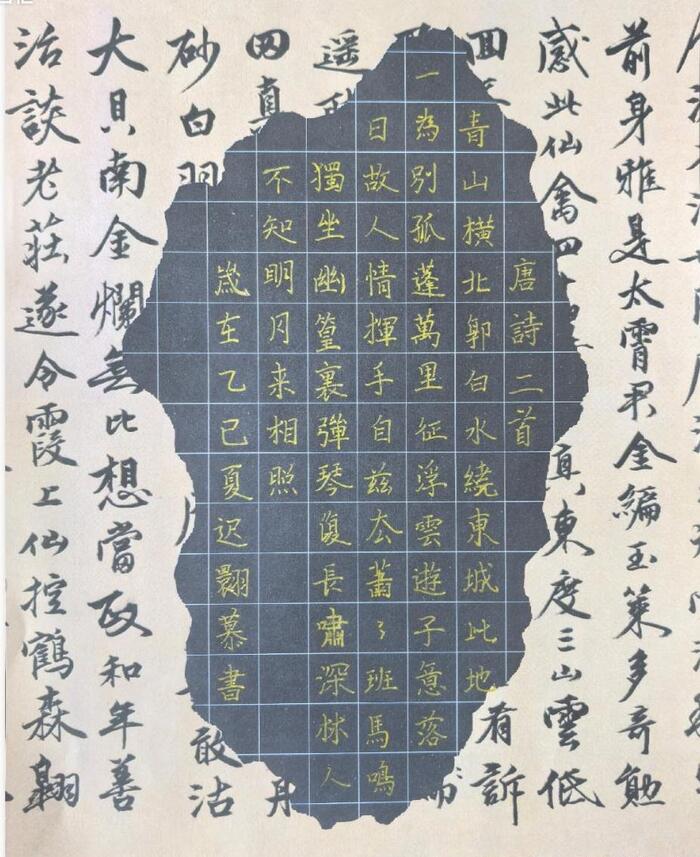 前身雅是太霄君金編玉策多奇勛
感此仙禽四
真東度三山雲低
有訴
唐詩二首
青山橫北郭白水繞東城此地
一為別孤蓬萬里征浮雲遊子意落
日故人情揮手自茲去蕭々班馬鳴
獨坐幽篁裏彈琴復長嘯深林人
不知明月来相照
歲在乙巳夏迟翾慕書
遥
真
丹
砂白羽
敢沽
大貝南金爛無比想當政和年善
談老莊遂令霞上仙控鶴森翺